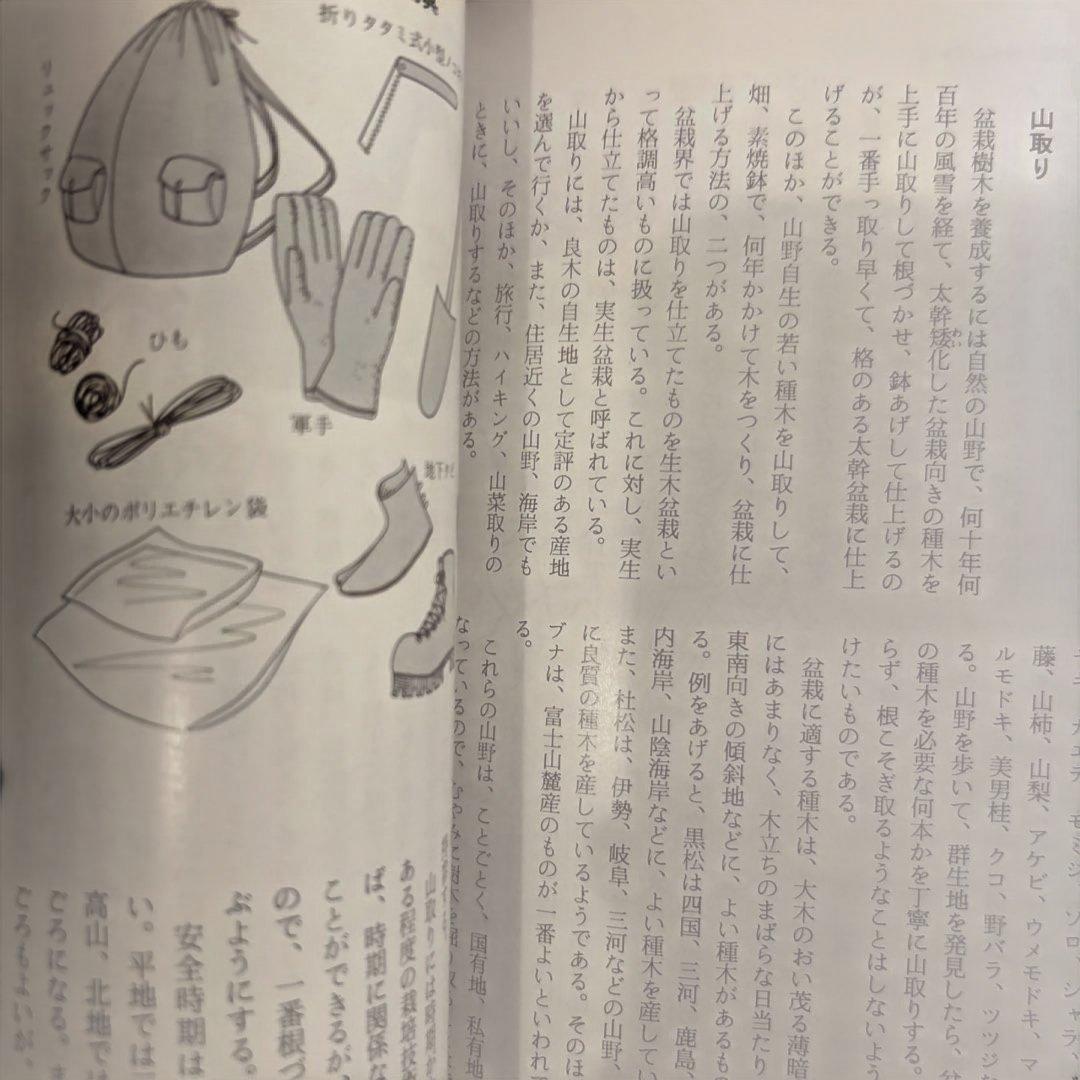 山取り
盆栽樹木を養成するには自然の山野で、何十年何
百年の風雪を経て、太幹矮化した盆栽向きの種木を
上手に山取りして根づかせ、鉢あげして仕上げるの
が、一番手っ取り早くて、格のある太幹盆栽に仕上
げることができる。
このほか、山野自生の若い種木を山取りして、
畑、素焼鉢で、何年かかけて木をつくり、盆栽に仕
上げる方法の、二つがある。
盆栽界では山取りを仕立てたものを生木盆栽とい
って格調高いものに扱っている。これに対し、実生
から仕立てたものは、実生盆栽と呼ばれている。
山取りには、良木の自生地として定評のある産地
を選んで行くか、また、住居近くの山野、海岸でも
いいし、そのほか、旅行、ハイキング、山菜取りの
ときに、山取りするなどの方法がある。
藤、山柿、山梨、アケビ、ウメモドキ、マ
ルモドキ、美男桂、クコ、野バラ、ツツジ
る。山野を歩いて、群生地を発見したら、
の種木を必要な何本かを丁寧に山取りする。
らず、根こそぎ取るようなことはしないよう
けたいものである。
盆栽に適する種木は、大木のおい茂る薄暗
にはあまりなく、木立ちのまばらな日当たり
東南向きの傾斜地などに、よい種木があるもの
る。例をあげると、黒松は四国、三河、鹿島、
内海岸、山陰海岸などに、よい種木を産してい
また、杜松は、伊勢、岐阜、三河などの山野、
に良質の種木を産しているようである。そのほ
ブナは、富士山麓産のものが一番よいといわれ
る。
これらの山野は、ことごとく、国有地、私有地
なっているので、むやみに樹木を掘り取
折りタタミ式小型ノコ
リュックサック
ひも
軍手
地下タビ
大小のポリエチレン袋
山取りには時期が
ある程度の栽培技
ば、時期に関係な
ことができるが、
ので、一番根づ
ぶようにする。
安全時期は
い。平地では
高山、北地で
ごろになる。
ごろもよいが、